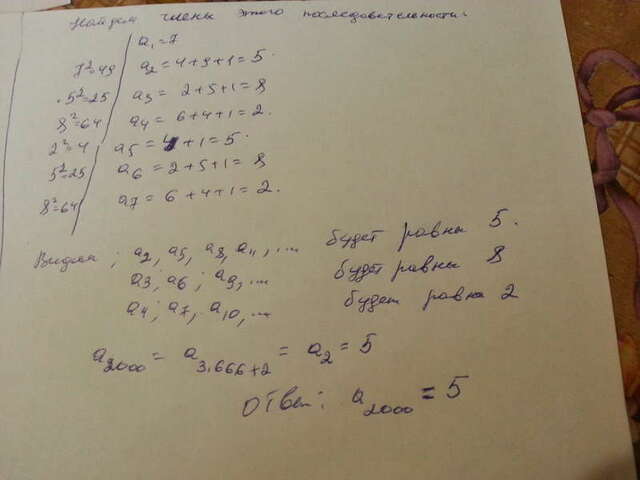 Найдём члены этого последовательности:
a₁=7
7²=49 a₂=4+9+1=5.
5²=25 a₃=2+5+1=8
8²=64 a₄=6+4+1=2.
2²=4 a₅=4+1=5.
5²=25 a₆=2+5+1=8
8²=64 a₇=6+4+1=2.
Видим; a₂, a₅, a₈, a₁₁, ... будет равны 5.
a₃; a₆; a₉, ... будет равны 8
a₄; a₇, a₁₀, ... будет равна 2
a₂₀₀₀ = a₃.₆₆₆₊₂ = a₂ = 5
Ответ: a₂₀₀₀ = 5